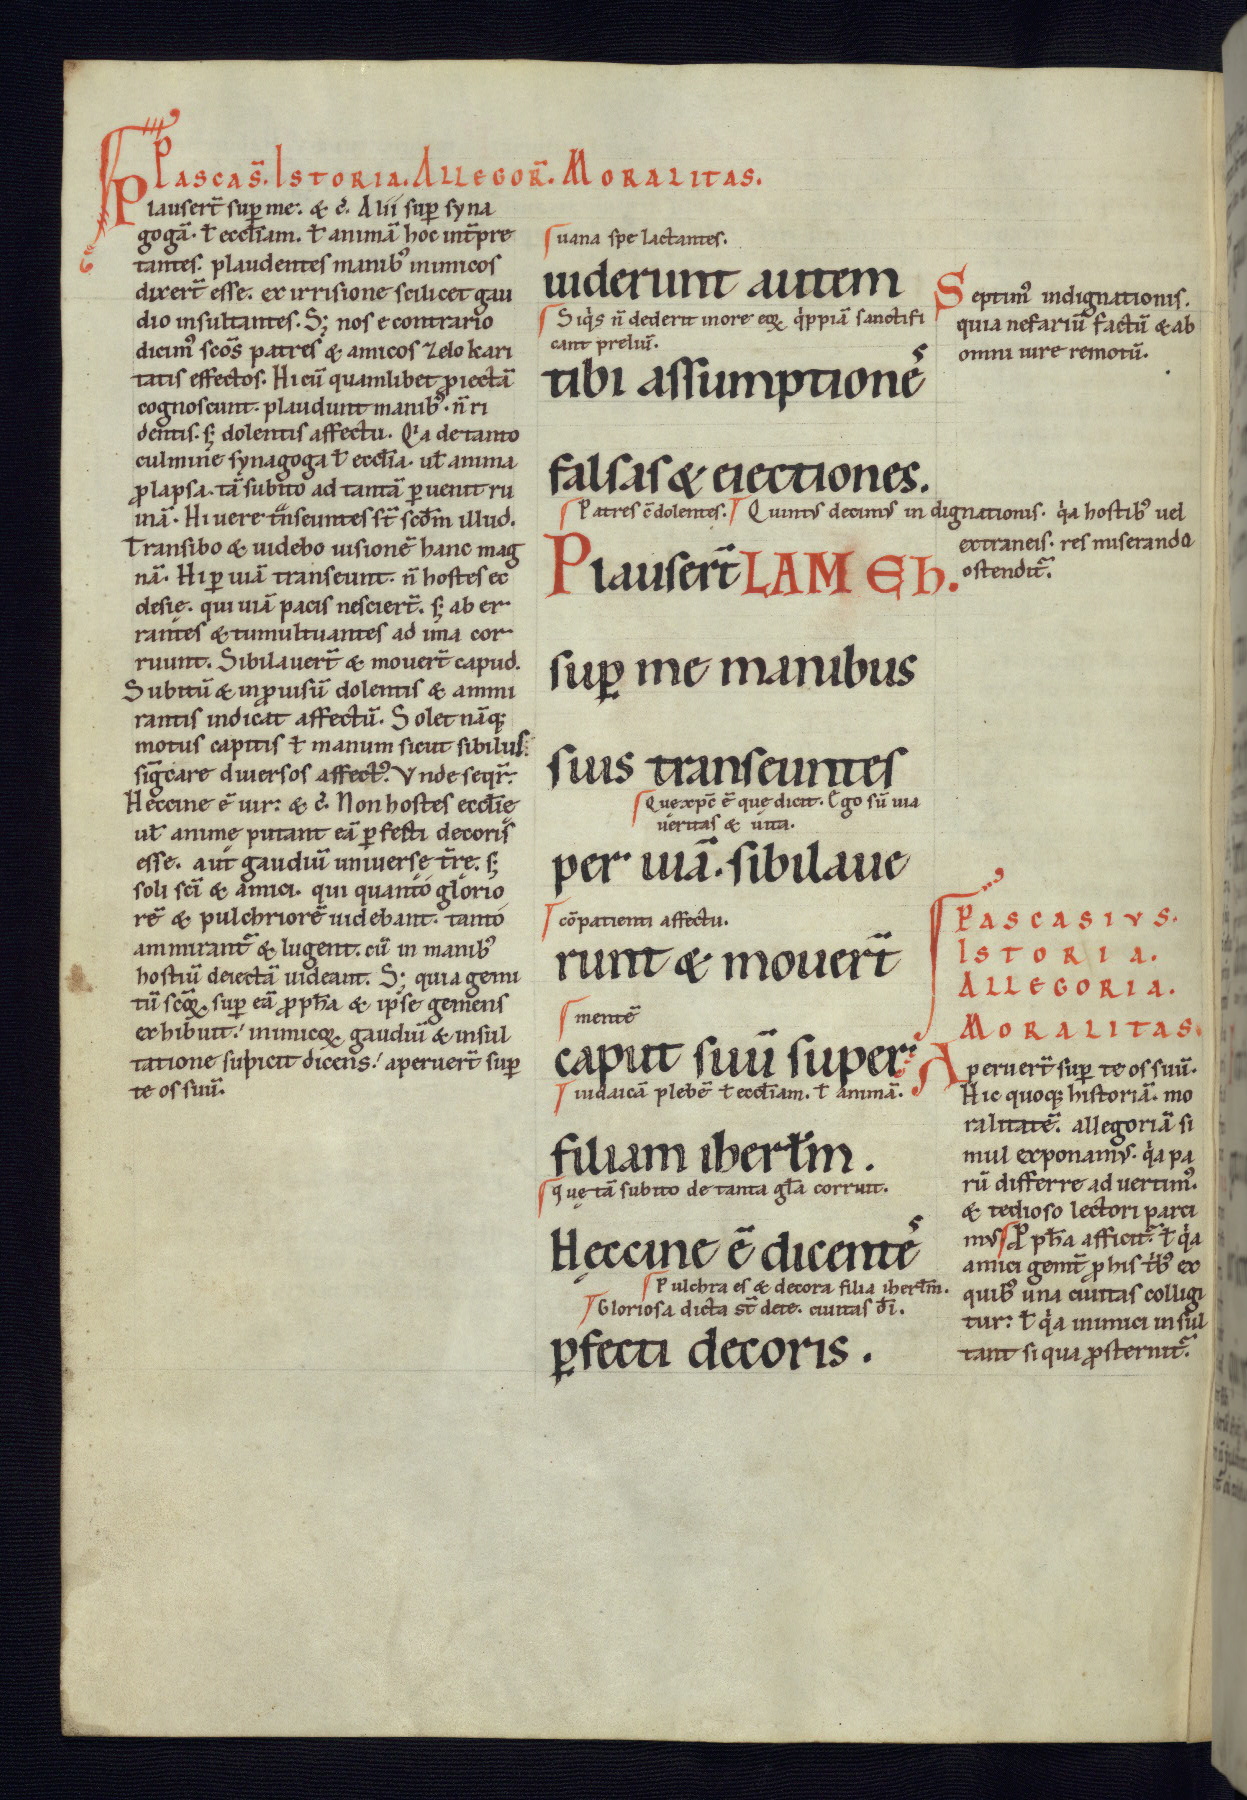 Pascas̄. Istoria. Allegor̄. Moralitas.
Plauser̄t suꝑ me. & c̄. Alii suꝑ syna
gogā. ł eccl̄iam. ł animā hoc int̄pre
tantes. plaudentes manibꝰ inimicos
dixer̄t esse. ex irrisione scilicet gau
dio insultantes. S; nos e contrario
dicimꝰ scōs patres & amicos zelo kari
tatis effectos. Hi cū quamlibet ꝓiectā
cognoscunt. plaudunt manibꝰ. n̄ ri
dentis. s; dolentis affectu. Qͥa de tanto
culmine synagoga ł eccl̄ia. ul̄ anima
ꝓlapsa. tā subito ad tantā ꝑuenit ru
inā. Hi uere t̄nseuntes st̄ scd̄m illud.
Transibo & uidebo uisionē hanc mag
nā. Hi ꝑ uiā transeunt. n̄ hostes ec
clesię. qui uiā pacis nescier̄t. s; ab er
rantes & tumultuantes ad ima cor
ruunt. Sibilauer̄t & mouer̄t capud.
Subitū & inꝓuisū dolentis & ammi
rantis indicat affectū. Solet nāq;
motus capitis ł manum sicut sibilus
sig̅care diuersos affectꝰ. Vnde seqr̄.
Heccine ē uir: & c̄. Non hostes eccl̄ię
ul̄ animę putant eā ꝑfecti decoris
esse. aut gaudiū uniuersę t̄re. s;
soli sc̄i & amici. qui quanto glorio
rē & pulchriorē uidebant. tanto
ammirant̄ & lugent. cū in manibꝰ
hostiū deiectā uideant. S; quia gemi
tū scōꝝ suꝑ eā ꝓph̄a & ip̄se gemens
exhibuit! inimicoꝝ gaudiū & insul
tatione supicit dicens! aperuer̄t suꝑ
te os suū.
uana spe lactantes.
uiderunt autem
Siqͥs n̄ dederit in ore eoꝝ qͥppiā sanctifi
cant preliū.
tibi assumptionēs
falsas & eiectiones.
Patres c̄dolentes. Quintus decimus indignationis. qͥa hostibꝰ uel
extraneis. res miseranda
ostendit̄.
Plauser̄t LAMEh.
suꝑ me manibus
suis transeuntes
Que xp̄c ē que dicit. Ego sū uia
ueritas & uita.
per uiā. sibilaue
cōpatienti affectu.
runt & mouer̄t
mentē
caput suū super
iudaicā plebē ł eccl̄iam. ł animā.
filiam iherl̄m.
quę tā subito de tanta gl̄a corruit.
Hęccine ē dicentēs
Pulchra es & decora filia iherl̄m.
Gloriosa dicta st̄ de te. ciuitas d̄i.
ꝑfecti decoris.
Septimꝰ indignationis.
quia nefariū factū & ab
omni iure remotū.
Pascasius.
Istoria.
Allegoria.
Moralitas.
Aperuer̄t suꝑ te os suū.
Hic quoq; historiā. mo
ralitatē. allegoriā si
mul exponamꝰ. qͥa pa
rū differre aduertimꝰ.
& tedioso lectori parci
mꝰ. ꝓph̄a afficit̄. ł qͥa
amici gemt̄ ꝓ his t̄bꝰ ex
quibꝰ una ciuitas colligi
tur: ł qͥa inimici insul
tant si qua ꝓsternit̄.